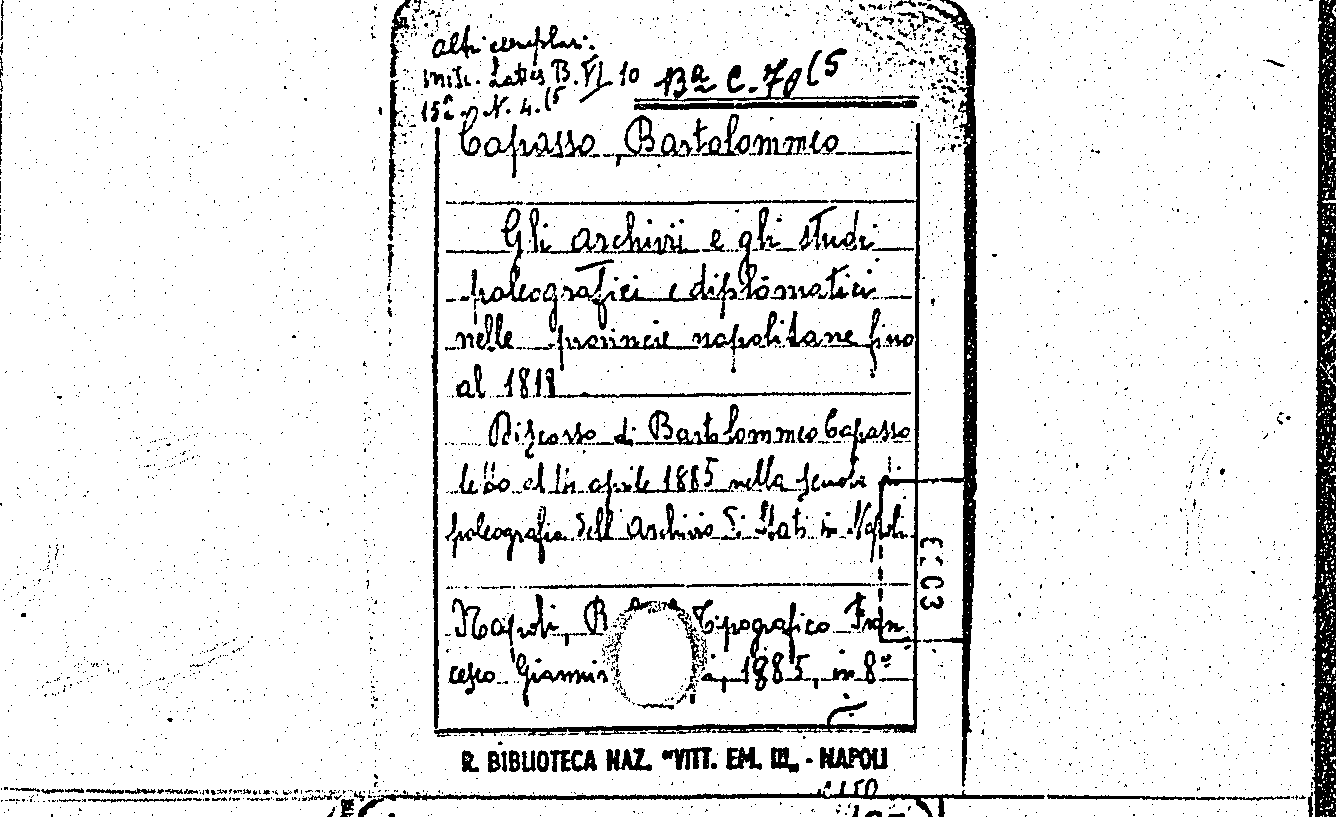 altri esemplari:
Misc. B. VI 10 13a C. 70 (5
15a N. 4. (5
Capasso, Bartolommeo
Gli archivii e gli studi
paleografici e diplomatici
nelle provincie napolitane fino
al 1818
Discorso di Bartolommeo Capasso
letto al aprile 1885 nella scuola di
paleografia dell'Archivio di Stato in Napoli
Napoli, R Tipografico Fran
cesco Giannini a, 1885, in 8°
R. BIBLIOTECA NAZ. "VITT. EM. III„ - NAPOLI